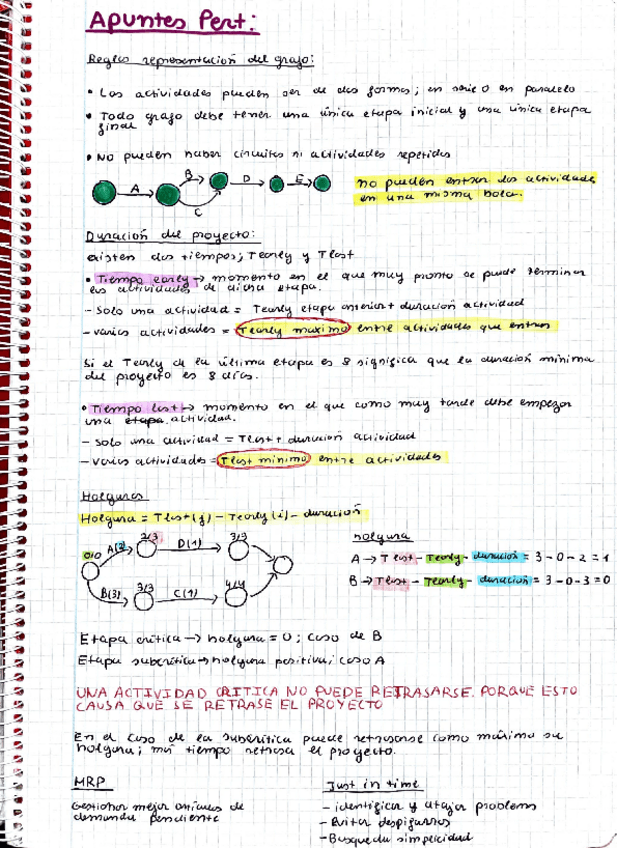 Apuntes Pert:
Reglas representación del grafo:
• Las actividades pueden ser de dos formas; en serie o en paralelo
• Todo grafo debe tener una única etapa inicial y una única etapa
final
• NO pueden haber circuitos ni actividades repetidas
A B C D E
no pueden entrar dos actividades
en una misma bola.
Duración del proyecto:
existen dos tiempos; Tearly y Tlast
• Tiempo early → momento en el que muy pronto se puede terminar
las actividades de dicha etapa.
- solo una actividad = Tearly etapa anterior + duración actividad
- varias actividades = Tearly maximo entre actividades que entran
Si el Tearly de la última etapa es 8 significa que la duración mínima
del proyecto es 8 días.
• Tiempo last → momento en el que como muy tarde debe empezar
una etapa. actividad.
- solo una actividad = Tlast + duración actividad
- varias actividades = Tlast mínimo entre actividades
Holguras
Holgura = Tlast (j) - Tearly (i) - duración
0/0 A(2) 2/3 D(1) 3/3
B(3) 3/3 C(1) 4/4
holgura
A → Tlast - Tearly - duración = 3 - 0 - 2 = 1
B → Tlast - Tearly - duración = 3 - 0 - 3 = 0
Etapa crítica → holgura = 0; caso de B
Etapa subcrítica → holgura positiva; caso A
UNA ACTIVIDAD CRITICA NO PUEDE RETRASARSE. PORQUE ESTO
CAUSA QUE SE RETRASE EL PROYECTO
En el caso de la subcrítica puede retrasarse como máximo su
holgura; más tiempo retrasa el proyecto.
MRP
Gestionar mejor
demanda pendiente
Just in time
- identificar y atajar problems
- Evitar despilfarros
- Búsqueda simplicidad